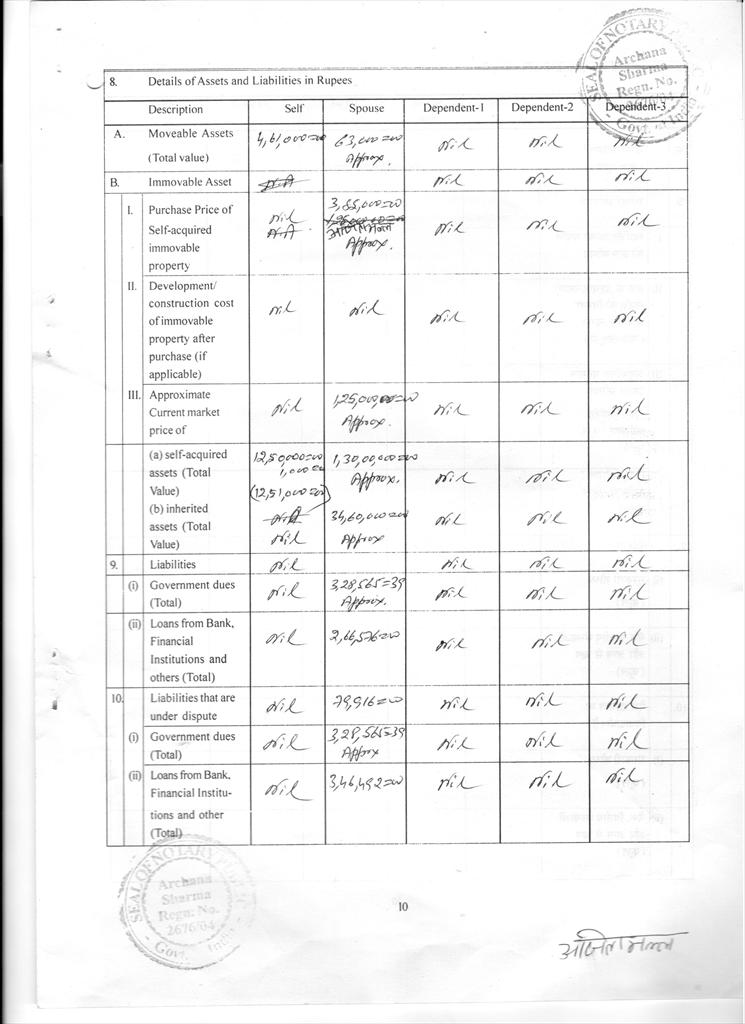 SEAL OF NOTARY
Archana
Sharma
Regn. No.
2676/04
Govt. of India
8. Details of Assets and Liabilities in Rupees
Description Self Spouse Dependent-1 Dependent-2 Dependent-3
A. Moveable Assets 4,61,000=00 63,000=00 Nil Nil Nil
(Total value) Approx.
B. Immovable Asset N.A Nil Nil Nil
I. Purchase Price of 3,85,000=00
Self-acquired Nil Nil Nil Nil
immovable N.A Approx.
property
II. Development/
construction cost Nil Nil Nil Nil Nil
of immovable
property after
purchase (if
applicable)
III. Approximate 1,25,00,000=00
Current market Nil Approx. Nil Nil Nil
price of
(a) self-acquired 12,50,000=00 1,30,00,000=00
assets (Total 1,000=00 Approx. Nil Nil Nil
Value) (12,51,000=00)
(b) inherited N.A 34,60,000=00 Nil Nil Nil
assets (Total Nil Approx
Value)
9. Liabilities Nil Nil Nil Nil
(i) Government dues Nil 3,28,565=39 Nil Nil Nil
(Total) Approx.
(ii) Loans from Bank, Nil 2,66,576=00 Nil Nil Nil
Financial
Institutions and
others (Total)
10. Liabilities that are Nil 79,916=00 Nil Nil Nil
under dispute
(i) Government dues Nil 3,28,565=39 Nil Nil Nil
(Total) Approx
(ii) Loans from Bank, Nil 3,46,492=00 Nil Nil Nil
Financial Institu-
tions and other
(Total)
SEAL OF NOTARY PUBLIC
Archana
Sharma
Regn. No.
2676/04
Govt. of India
10